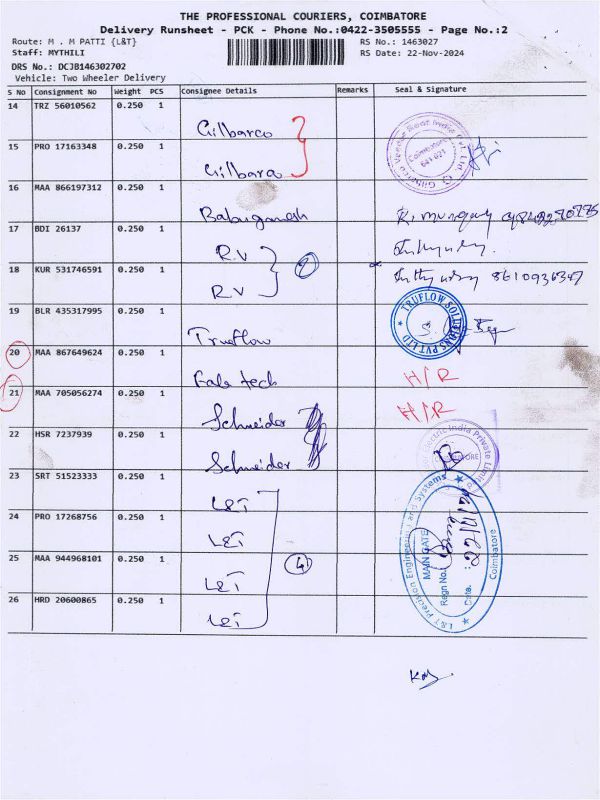 THE PROFESSIONAL COURIERS, COIMBATORE
Delivery Runsheet - PCK - Phone No.:0422-3505555 - Page No.:2
Route: M . M PATTI {L&T} RS No.: 1463027
Staff: MYTHILI RS Date: 22-Nov-2024
DRS No.: DCJB146302702
Vehicle: Two Wheeler Delivery
S No Consignment No Weight PCS Consignee Details Remarks Seal & Signature
14 TRZ 56010562 0.250 1 Gilbarco
15 PRO 17163348 0.250 1 Gilbarco
Coimbatore
641 021
16 MAA 866197312 0.250 1 Babuganesh
17 BDI 26137 0.250 1 R.V
18 KUR 531746591 0.250 1 R.V 8610936347
2
19 BLR 435317995 0.250 1 Truflow
TRUFLOW SOLUTIONS PVT LTD
20 MAA 867649624 0.250 1 Fab tech H/R
21 MAA 705056274 0.250 1 Schneider H/R
22 HSR 7237939 0.250 1 Schneider
Electric India Private Limited
23 SRT 51523333 0.250 1 L&T
24 PRO 17268756 0.250 1 L&T
25 MAA 944968101 0.250 1 L&T
4
26 HRD 20600865 0.250 1 L&T
L&T Precision Engineering and Systems
MAIN GATE
Regn No.
Date.
Coimbatore